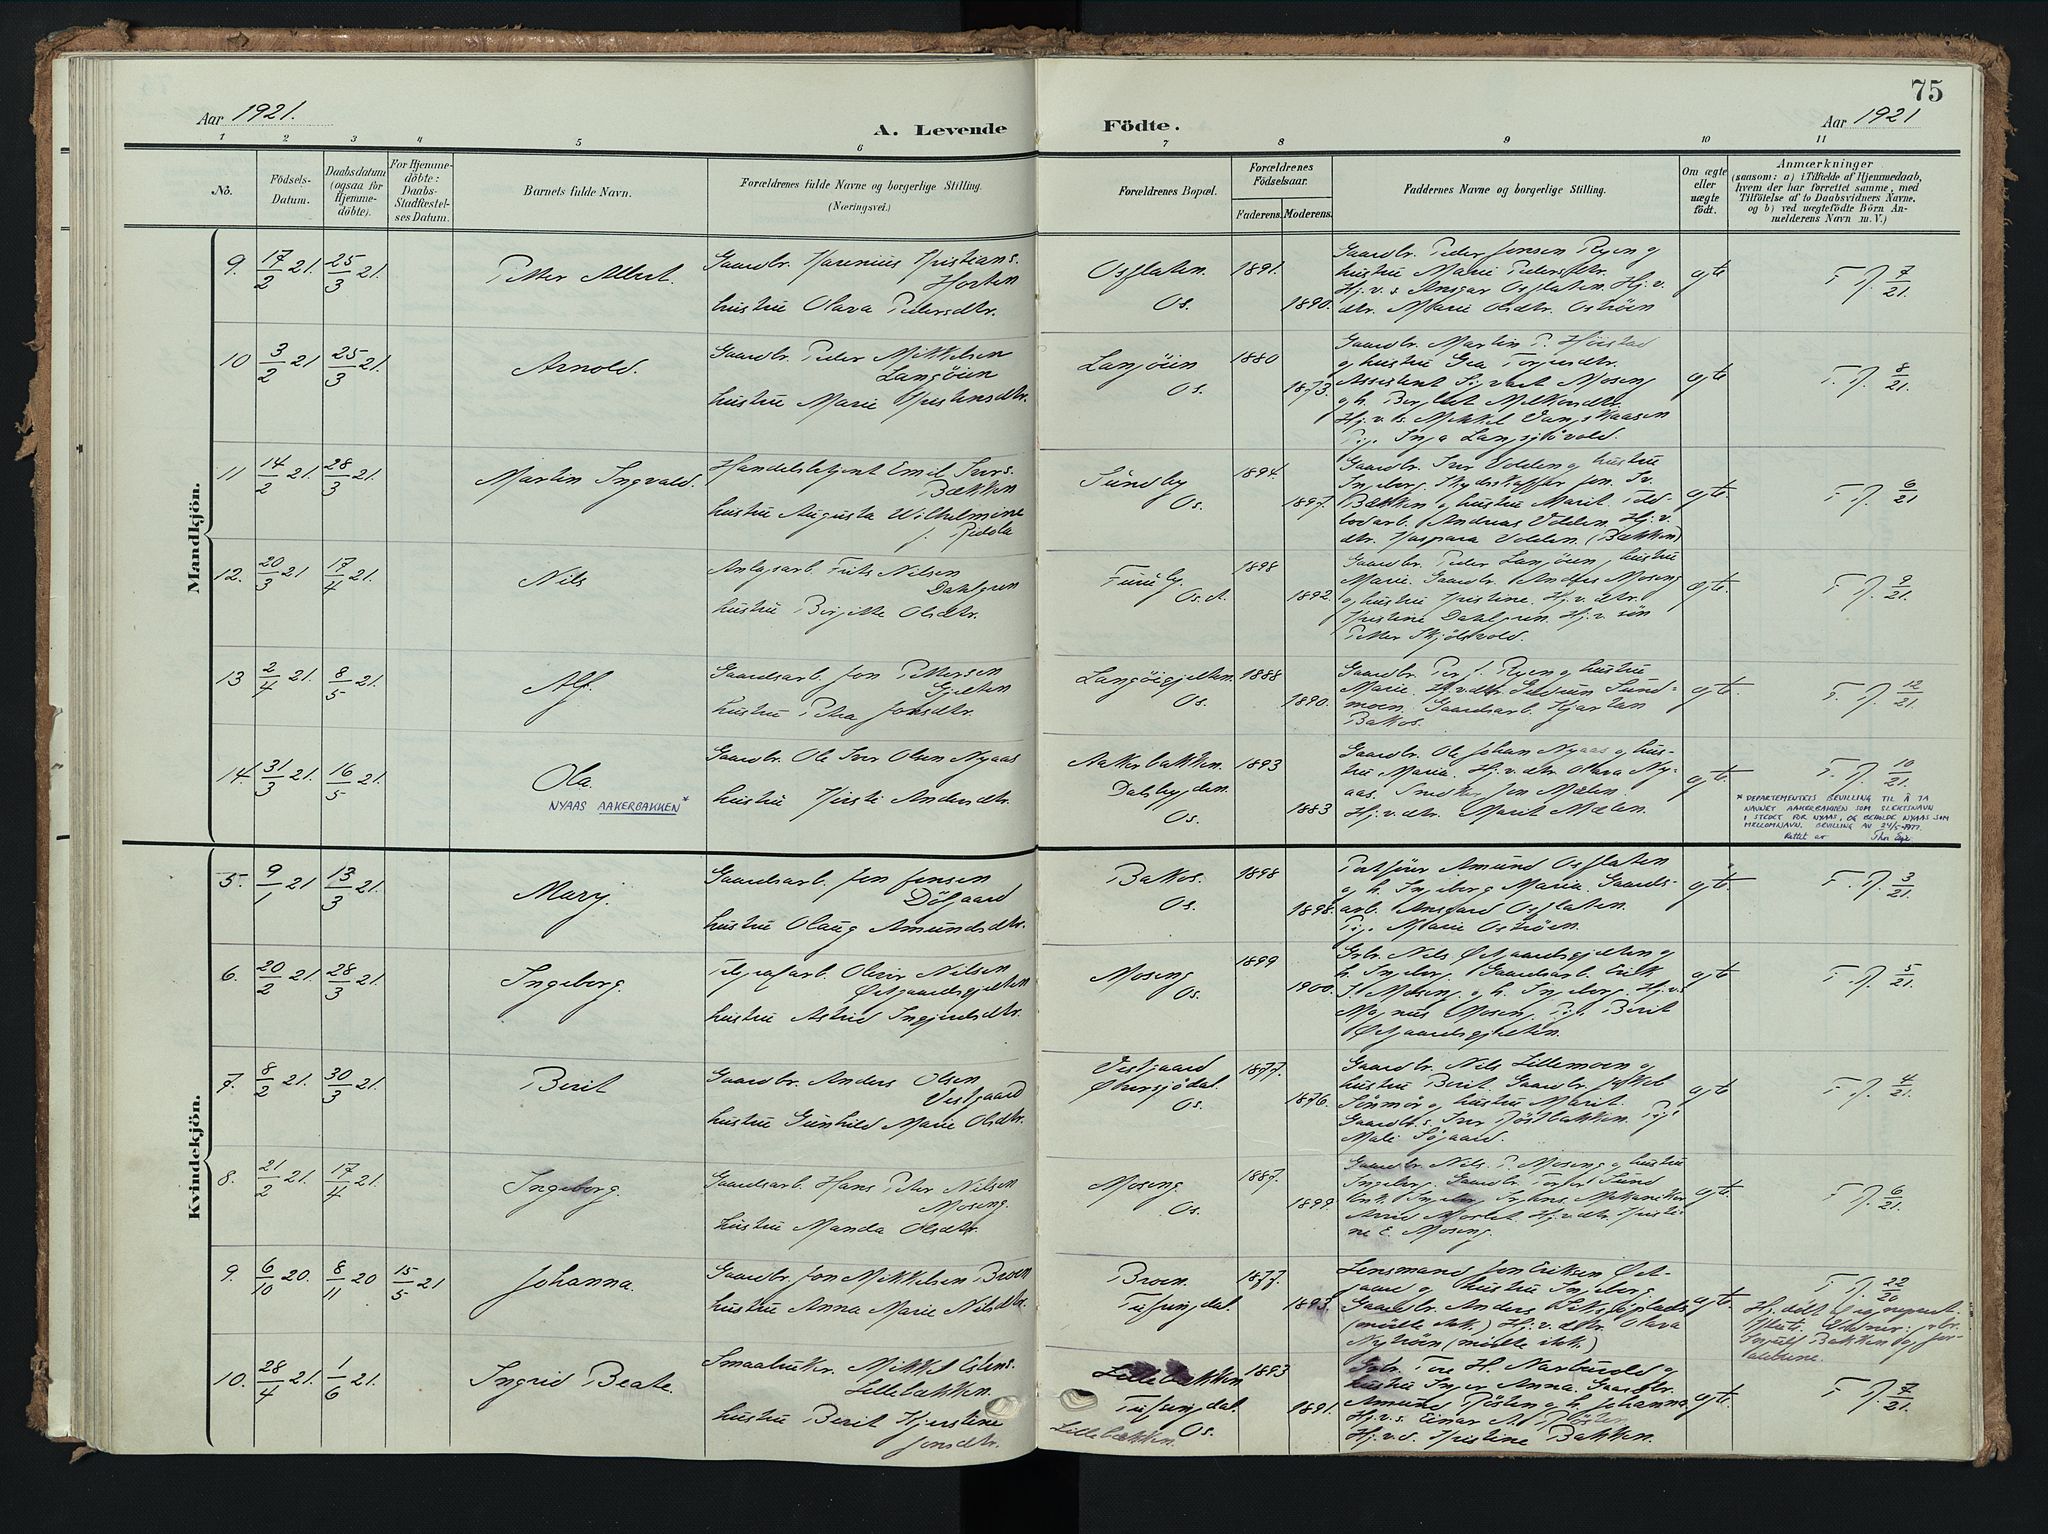 75
Aar 1921.
A. Levende Födte.
Aar 1921
1 2 3 4 5 6 7 8 9 10 11
No.
Födsels-
Datum.
Daabsdatum
(ogsaa for
Hjemme-
döbte).
For Hjemme-
döbte:
Daabs-
Stadfæstel-
ses Datum.
Barnets fulde Navn.
Forældrenes fulde Navne og borgerlige Stilling.
(Næringsvei.)
Forældrenes Bopæl.
Forældrenes
Födselsaar.
Faderens. Moderens.
Faddernes Navne og borgerlige Stilling.
Om ægte
eller
uægte
födt.
Anmærkninger
(saasom: a) i Tilfælde af Hjemmedaab,
hvem der har forrettet samme, med
Tilföielse af to Daabsvidners Navne,
og b) ved uægtefödte Börn An-
melderens Navn m. V.)
Mandkjön.
9. 17/2 21. 25/3 21. Petter Albert.
Gaardbr. Harenius Kristians.
Horten
hustru Olava Pedersdtr.
Osflaten
Os.
1891.
1890.
Gaardbr. Peder Jonsen Ryen og
hustru Marie Pedersdtr.
Hj.v.s. Ansgar Osflaten. Hj.v.
dtr. Marie Olsdtr. Oströen
gte
F. J. 7/21.
10 3/2 21 25/3 21. Arnold.
Gaardbr. Peder Mikkelsen
Langöien
hustru Marie Kristensdtr.
Langöien
Os.
1880
1873.
Gaardbr. Martin P. Höistad
og hustru Gea
Assistent Sigvart Moseng
og h.
Hj.v.s. Mikkel Vangskaasen
Pig. Inga Langsjövold.
gte
F. J. 8/21.
11 14/2 21. 28/3 21. Martin Ingvald.
Handelsbetjent Emil Ivers.
Bækken
hustru Augusta Wilhelmine
Sundby
Os.
1894.
1897.
Gaardbr. Iver Volden og hustru
Ingeborg. Skydsskaffer Jon Iv.
Bækken og hustru Marit.
Andreas Volden. Hj.v.
dtr. Kaspara Volden. (Bækken)
gte.
F. J. 6/21
12. 20/3 21 17/4 21. Nils
Anlgsarb. Frits Nilsen
Dahlgren
hustru Birgitte Olsdtr.
Furuly.
Os.
1898
1892.
Gaardbr. Peder Langöien, hustru
Marie. Gaardbr. Anders Moseng
og hustru Kristine. Hj.v. dtr.
Kristine Dahlgren. Hj.v. sön
Petter Skjölsvold.
gte.
F. J. 9/21.
13 2/4 21. 8/5 21. Alf.
Gaardsarb. Jon Pettersen
Gjelten
hustru Petra Jonsdtr.
Langöigjelten
Os.
1888
1890.
Gaardbr. Per J. Ryen og hustru
Marie. Hj.v.dtr. Gudrun Sund-
moen. Gaardsarb. Kjartan
Bakos.
gte.
F. J. 12/21.
14. 31/3 21. 16/5 21. Ola.
NYAAS AAKERBAKKEN*
Gaardbr. Ole Iver Olsen Nyaas
hustru Kirsti Andersdtr.
Aakerbakken
Dalsbygden.
Os.
1893
1883
Gaardbr. Ole Johan Nyaas og hus-
tru Maria. Hj.v. dtr. Olava Ny-
aas. Snedker Jon Mælen.
Hj.v.dtr. Marit Mælen.
gte.
F. J. 10/21.
* DEPARTEMENTETS BEVILLING TIL Å TA
NAVNET AAKERBAKKEN SOM SLEKTSNAVN
I STEDET FOR NYAAS, OG BEHOLDE NYAAS SOM
MELLOMNAVN. BEVILLING AV 24/5-1977.
Rettet av
Kvindekjön.
5. 9/1 21 13/3 21. Mary.
Gaardsarb. Jon Jensen
Dölgaard
hustru Olaug Amundsdtr.
Bakos.
Os.
1898
1898.
Amund Osflaten
og h. Ingeborg Maria. Gaards-
arb. Ansgard Osflaten.
Pig. Marie Oströen.
gte.
F. J. 3/21.
6. 20/2 21. 28/3 21. Ingeborg.
Tlgrafarb. Oliver Nilsen
Østgaardsgjelten
hustru Astrid Ingjerdsdtr.
Moseng
Os.
1899
1900.
Gbr. Nils Østgaardsgjelten og
h. Ingeborg. Gaardsarb. Erik
J. Moseng og h. Ingeborg. Hj.v.s.
Magnus Moseng. Pige Berit
Østgaardsgjelten.
gte
F. J. 5/21.
7. 8/2 21. 30/3 21. Berit
Gaardbr. Anders Olsen
Vestgaard
hustru Gunhild Marie Olsdtr.
Vestgaard
Øversjödal.
Os.
1877.
1876.
Gaardbr. Nils Lillemoen og
hustru Berit. Gaardbr. Jakob
Sönmör og hustru Marit.
Gaardb.s. Iver Röstbakken. Pige
Mali Sögaard.
gte
F. J. 4/21.
8. 21/2 21. 17/4 21. Ingeborg.
Gaardsarb. Hans Peter Nilsen
Moseng.
hustru Manda Olsdtr.
Moseng.
Os.
1887.
1899.
Gaardbr. Nils P. Moseng og hustru
Ingeborg. Gaardbr. Sund
Hj.v.dtr. Kristi-
ne E. Moseng.
gte.
F. J. 6/21.
9. 6/10 20. 8/11 20 15/5 21 Johanna.
Gaardbr. Jon Mikkelsen Broen
hustru Anna Marie Nilsdtr.
Broen.
Tufsingdal.
1877.
1893.
Lensmand Jon Eriksen Øst-
gaard og hustru Ingeborg.
Gaardbr. Anders
(mötte ikke.) Hj.v.dtr. Olava
Nyhröen (mötte ikke.)
gte.
F. J. 22/20
Hj.döbt
Bakken og for-
ældrene.
10. 28/4 21. 1/6 21. Ingrid Beate.
Smaabruker. Mikkel Estens.
Lillebækken.
hustru Berit Kjerstine
Jonsdtr.
Lillebækken
Tufsingdal.
Os.
Lillebækken.
1893
1891.
Gbr. Tore H. Narbuvold og
hustru Inger Anna. Gaardbr.
Amund Rösten og h. Johanna
Hj.v.s. Einar A. Rösten
Hj.v.d. Kristine Bakken.
gte.
F. J. 7/21.